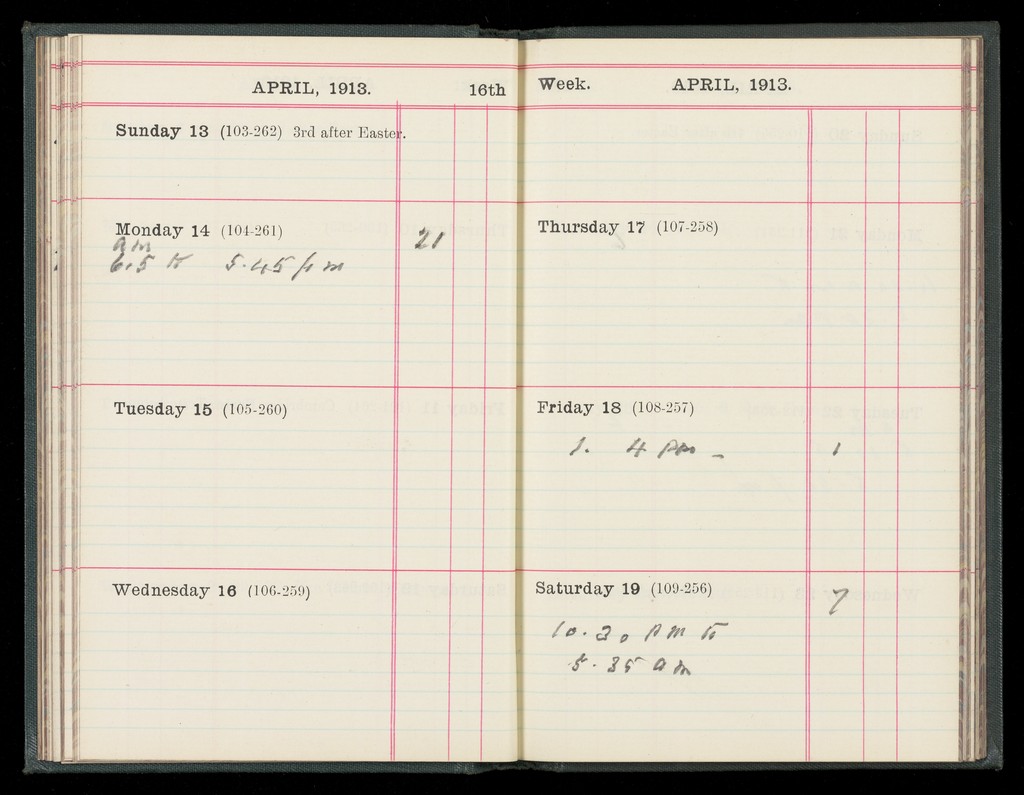 APRIL, 1913. 16th
Sunday 13 (103-262) 3rd after Easter.
Monday 14 (104-261) 21
am
6.5 to 5.45 pm
Tuesday 15 (105-260)
Wednesday 16 (106-259)
Week. APRIL, 1913.
Thursday 17 (107-258)
Friday 18 (108-257)
1. 4 pm - 1
Saturday 19 (109-256) 7
10.20 pm to
5.35 am